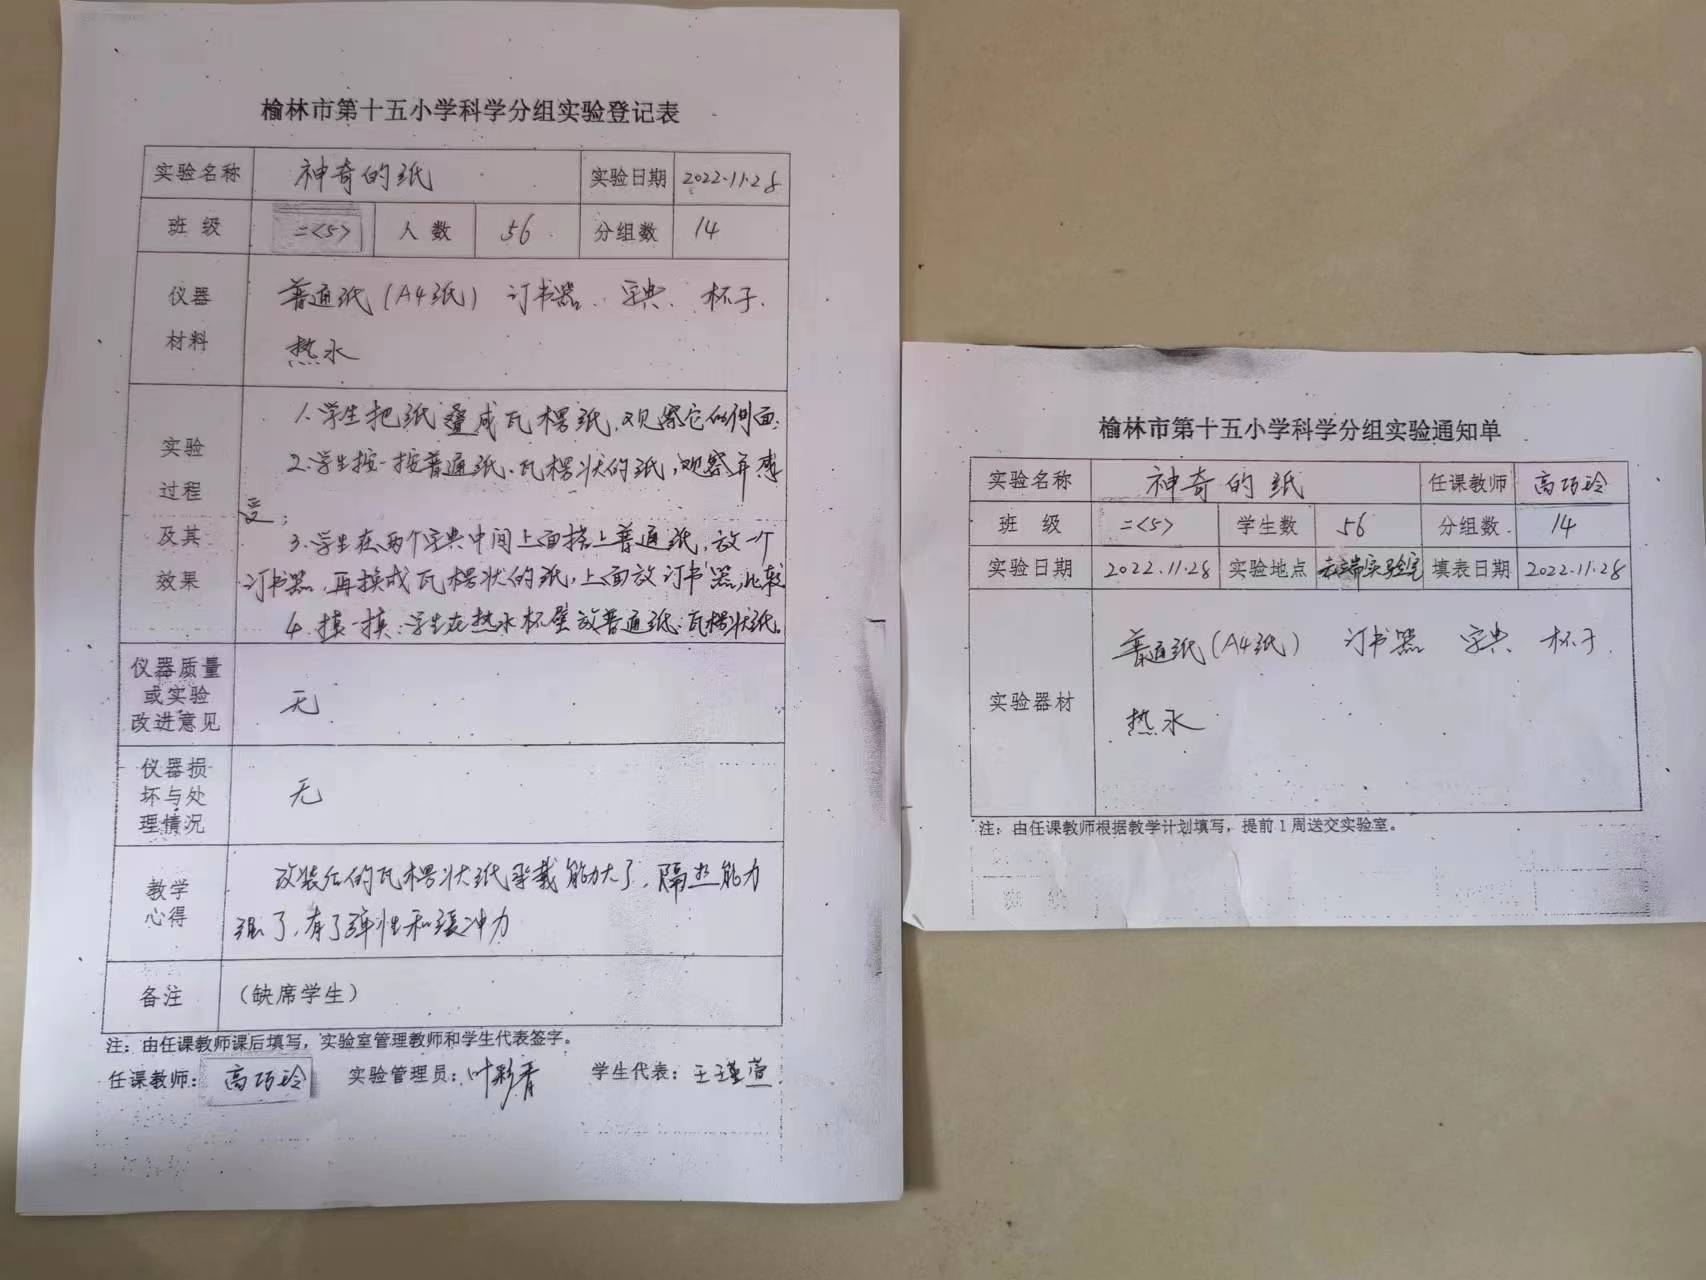 榆林市第十五小学科学分组实验登记表
实验名称 神奇的纸 实验日期 2022.11.28
班级 二<5> 人数 56 分组数 14
仪器材料 普通纸(A4纸) 订书器、字典、杯子、
热水
实验过程及其效果 1.学生把纸叠成瓦楞纸,观察它的侧面;
2.学生按一按普通纸、瓦楞状的纸,观察并感
受;
3.学生在两个字典中间上面搭上普通纸,放一个
订书器,再换成瓦楞状的纸,上面放订书器,比较
4.摸一摸:学生在热水杯壁放普通纸、瓦楞状纸。
仪器质量或实验改进意见 无
仪器损坏与处理情况 无
教学心得 改装后的瓦楞状纸承载能力大了,隔热能力
强了,有了弹性和缓冲力
备注 (缺席学生)
注:由任课教师课后填写,实验室管理教师和学生代表签字。
任课教师:高巧玲 实验管理员:叶彩青 学生代表:王瑾萱
榆林市第十五小学科学分组实验通知单
实验名称 神奇的纸 任课教师 高巧玲
班级 二<5> 学生数 56 分组数 14
实验日期 2022.11.28 实验地点 实验室 填表日期 2022.11.28
实验器材 普通纸(A4纸) 订书器 字典 杯子
热水
注:由任课教师根据教学计划填写,提前1周送交实验室。